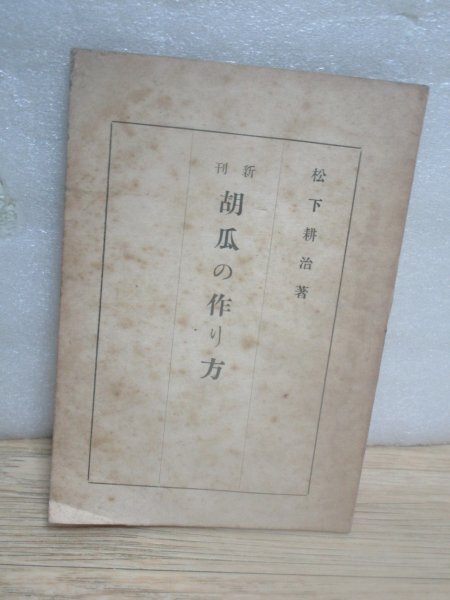 松下耕治著
新刊
胡瓜の作り方